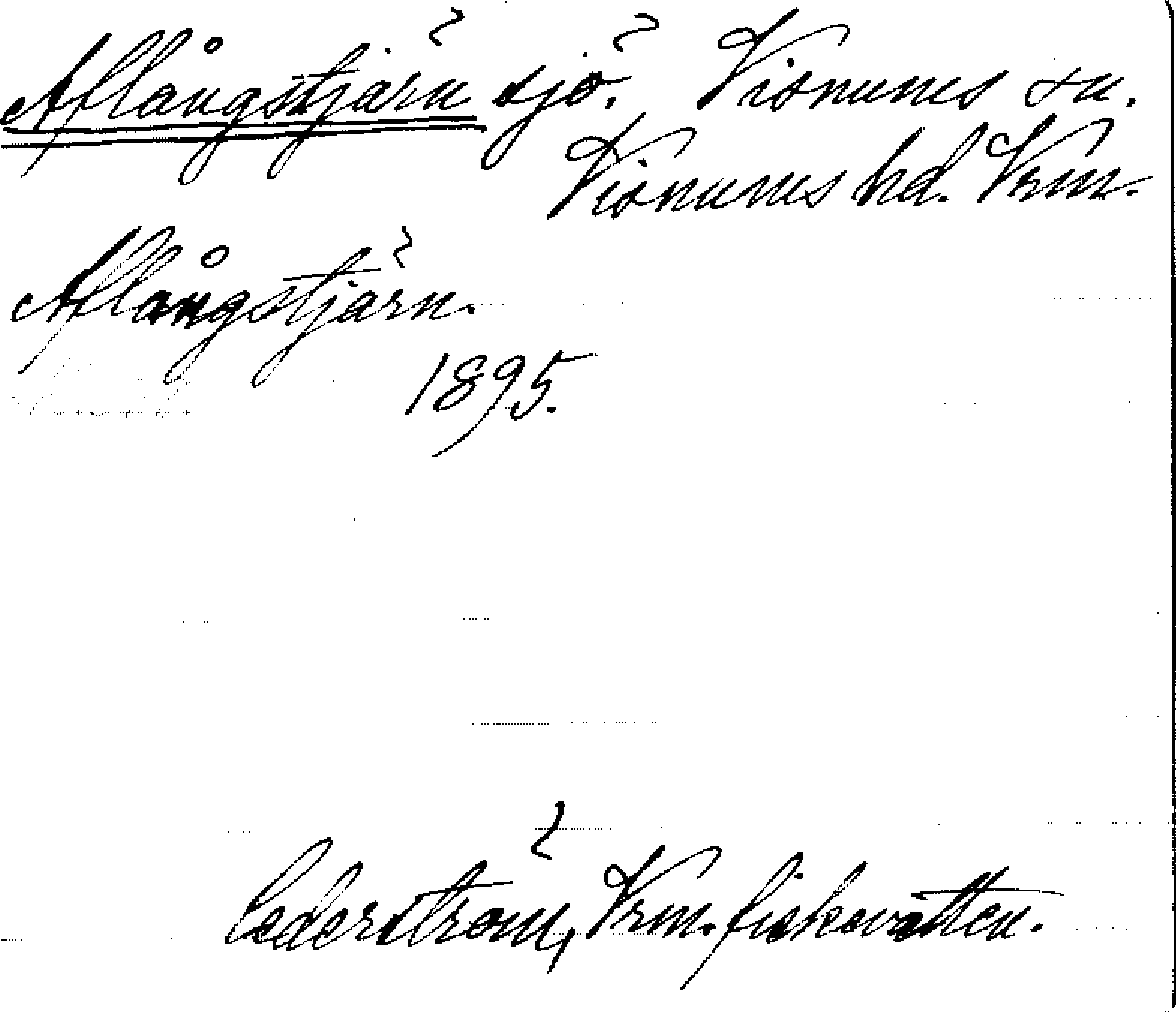 Aflångstjärn sjö. Visnums sn.
Visnums hd. Vrm.
Aflångstjärn.
1895.
Cederström, Vrm. fiskevatten.